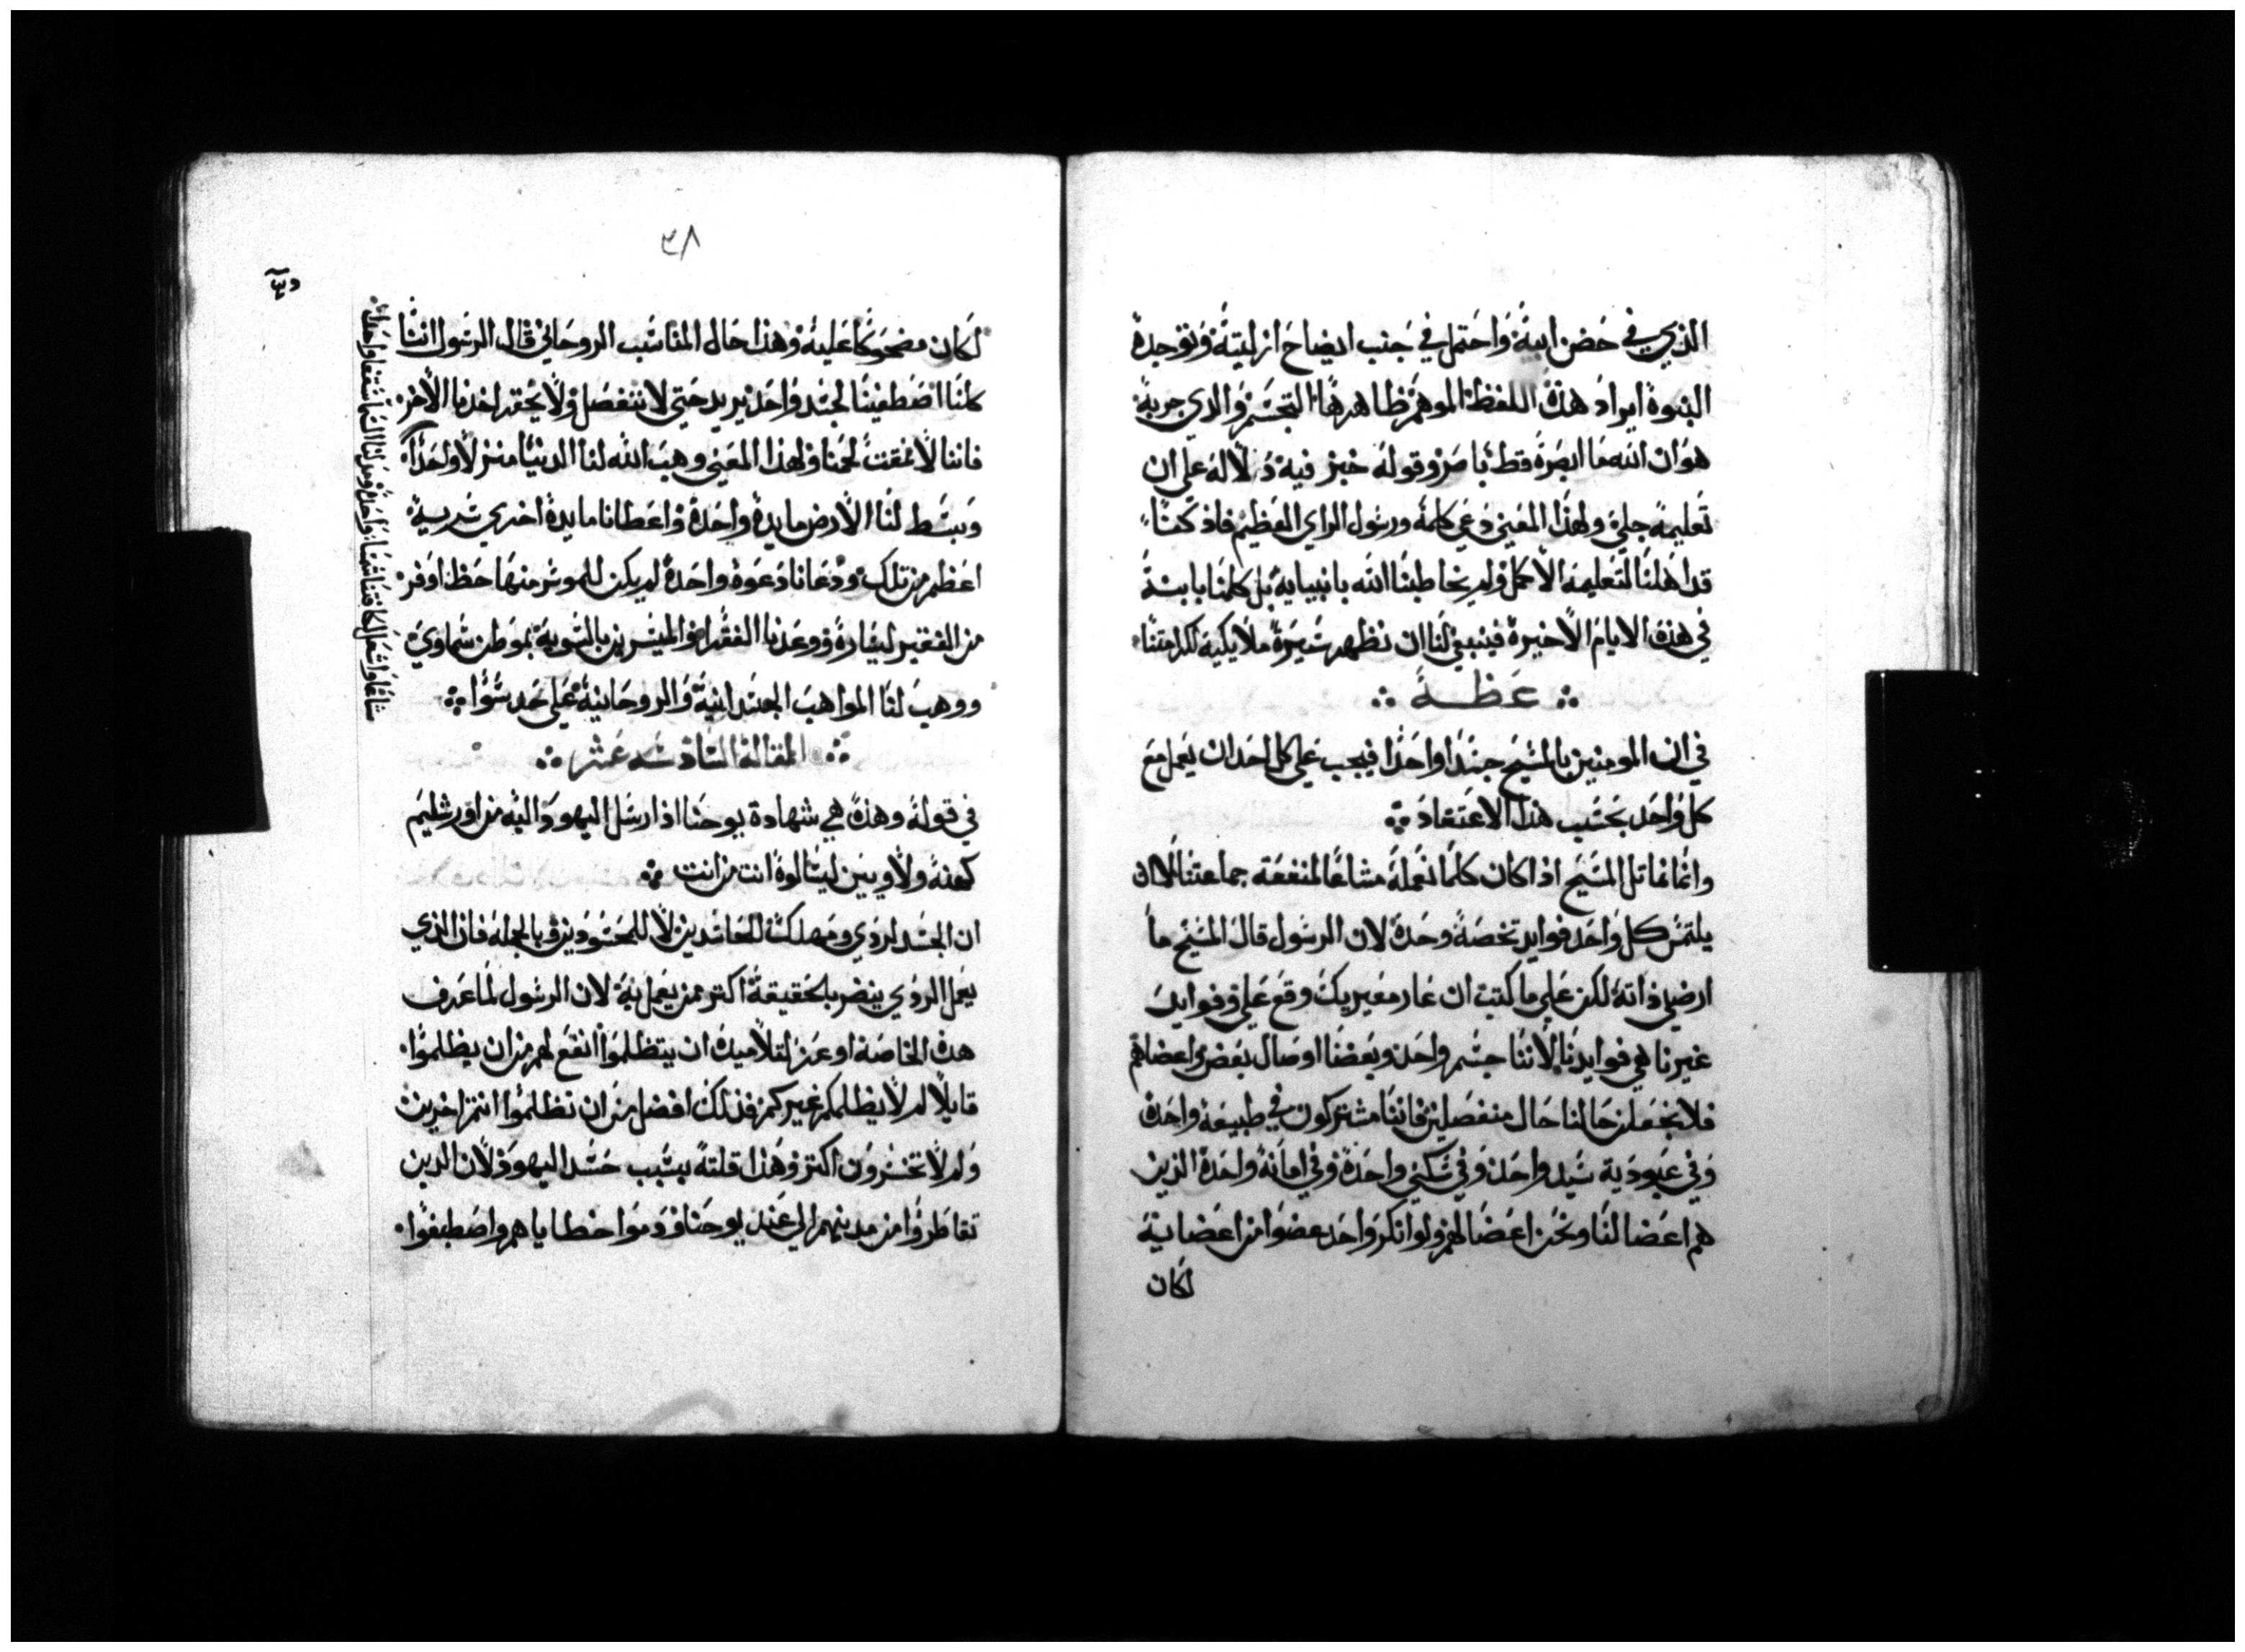 الذي في حضن ابيه واحتمل في جنب ايضاح ازليته وتوحده
البنوة ايراد هذه اللفظه الموهم ظاهرها التجسم والذي جربه
هو ان الله ما ابصره قط باصر وقوله خبر فيه دلاله علي ان
تعليمه جلي ولهذا المعني دعي كلمه ورسول الراي العظيم فاذ كنا
قد اهلنا لتعليمه الاكمل ولم يخاطبنا الله بانبيايه بل كلمنا بابنه
في هذه الايام الاخيره فينبغي لنا ان نظهر سيره ملايكيه لكرامتنا
عظه
في ان المومنين بالمسيح جسدا واحدا فيجب علي كل احد ان يعمل مع
كل واحد بحسب هذا الاعتقاد
وانما نماثل المسيح اذا كان كلما نعمله مشاعا لمنفعة جماعتنا لا ان
يلتمس كل واحد فوايد تخصه وحده لان الرسول قال المسيح ما
ارضي ذاته لكن علي ما كتبت ان عار معيريك وقع علي وفوايد
غيرنا هي فوايدنا لاننا جسم واحد وبعضنا اوصال بعض واعضاهم
فلا نجعلن حالنا حال منفصلين فاننا مشتركون في طبيعة واحدة
وفي عبودية سيد واحد وفي سكني واحدة وفي امانة واحدة الذين
هم اعضا لنا ونحن اعضا لهم ولو انكر واحد عضوا من اعضايه
لكان
٣٨
لكان مضحوكا عليه وهذا حال المناسب الروحاني قال الرسول اننا
كلنا اصطبغنا لجسد واحد يريد حتي لا ننفصل ولا يحقد احدنا الاخر
فاننا لا نمقت لحمنا ولهذا المعني وهب الله لنا الدنيا منزلا واحدا
وبسط لنا الارض مايدة واحدة واعطانا مايدة اخري سريه
اعظم من تلك ودعانا دعوة واحدة لم يكن للموسر منها حظا اوفر
من الفقير ليساره ووعدنا الفقرا والميسرين بالسويه بموطن سماوي
ووهب لنا المواهب الجسدانية والروحانية علي حد سوا
المقالة السادسه عشر
في قوله وهذه هي شهادة يوحنا اذ ارسل اليهود اليه من اورشليم
كهنه ولاويين ليسالوه انت من انت
ان الحسد لردي ومهلك للحاسدين لا للمحسودين وبالجمله فان الذي
يعمل الردي ينضر بالحقيقة اكتر ممن يعمل به لان الرسول لما عرف
هذه الخاصة اوعز لتلاميده ان يتظلموا انفع لهم من ان يظلموا
قايلا لم لا يظلمكم غيركم فذلك افضل من ان تظلموا انتم اخرين
ولم لا تخسرون اكتر وهذا قلته بسبب حسد اليهود لان الدين
تقاطروا من مدينهم الي عند يوحنا وذموا خطاياهم واصطبغوا